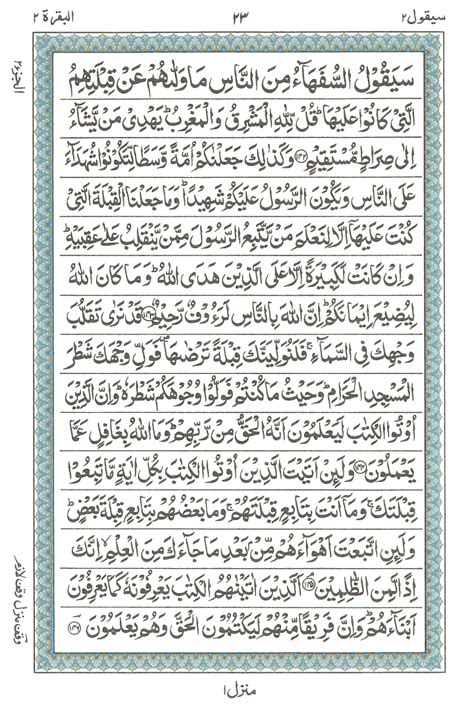 سيقول ٢ ٢٣ البقرة ٢
الجزء ٢
سَيَقُوْلُ السُّفَهَآءُ مِنَ النَّاسِ مَا وَلّٰىهُمْ عَنْ قِبْلَتِهِمُ
الَّتِيْ كَانُوْا عَلَيْهَا ؕ قُلْ لِّلّٰهِ الْمَشْرِقُ وَالْمَغْرِبُ ؕ يَهْدِيْ مَنْ يَّشَآءُ
اِلٰى صِرَاطٍ مُّسْتَقِيْمٍ ۝۱۴۲ وَكَذٰلِكَ جَعَلْنٰكُمْ اُمَّةً وَّسَطًا لِّتَكُوْنُوْا شُهَدَآءَ
عَلَى النَّاسِ وَيَكُوْنَ الرَّسُوْلُ عَلَيْكُمْ شَهِيْدًا ؕ وَمَا جَعَلْنَا الْقِبْلَةَ الَّتِيْ
كُنْتَ عَلَيْهَاۤ اِلَّا لِنَعْلَمَ مَنْ يَّتَّبِعُ الرَّسُوْلَ مِمَّنْ يَّنْقَلِبُ عَلٰى عَقِبَيْهِ ؕ
وَاِنْ كَانَتْ لَكَبِيْرَةً اِلَّا عَلَى الَّذِيْنَ هَدَى اللّٰهُ ؕ وَمَا كَانَ اللّٰهُ
لِيُضِيْعَ اِيْمَانَكُمْ ؕ اِنَّ اللّٰهَ بِالنَّاسِ لَرَءُوْفٌ رَّحِيْمٌ ۝۱۴۳ قَدْ نَرٰى تَقَلُّبَ
وَجْهِكَ فِي السَّمَآءِ ۚ فَلَنُوَلِّيَنَّكَ قِبْلَةً تَرْضٰىهَا ۪ فَوَلِّ وَجْهَكَ شَطْرَ
الْمَسْجِدِ الْحَرَامِ ؕ وَحَيْثُ مَا كُنْتُمْ فَوَلُّوْا وُجُوْهَكُمْ شَطْرَهٗ ؕ وَاِنَّ الَّذِيْنَ
اُوْتُوا الْكِتٰبَ لَيَعْلَمُوْنَ اَنَّهُ الْحَقُّ مِنْ رَّبِّهِمْ ؕ وَمَا اللّٰهُ بِغَافِلٍ عَمَّا
يَعْمَلُوْنَ ۝۱۴۴ وَلَئِنْ اَتَيْتَ الَّذِيْنَ اُوْتُوا الْكِتٰبَ بِكُلِّ اٰيَةٍ مَّا تَبِعُوْا
قِبْلَتَكَ ۚ وَمَاۤ اَنْتَ بِتَابِعٍ قِبْلَتَهُمْ ۚ وَمَا بَعْضُهُمْ بِتَابِعٍ قِبْلَةَ بَعْضٍ ؕ
وَلَئِنِ اتَّبَعْتَ اَهْوَآءَهُمْ مِّنْۢ بَعْدِ مَا جَآءَكَ مِنَ الْعِلْمِ ۙ اِنَّكَ
اِذًا لَّمِنَ الظّٰلِمِيْنَ ۝۱۴۵ اَلَّذِيْنَ اٰتَيْنٰهُمُ الْكِتٰبَ يَعْرِفُوْنَهٗ كَمَا يَعْرِفُوْنَ
اَبْنَآءَهُمْ ؕ وَاِنَّ فَرِيْقًا مِّنْهُمْ لَيَكْتُمُوْنَ الْحَقَّ وَهُمْ يَعْلَمُوْنَ ۝۱۴۶
وقف منزل وقف لازم
منزل ۱